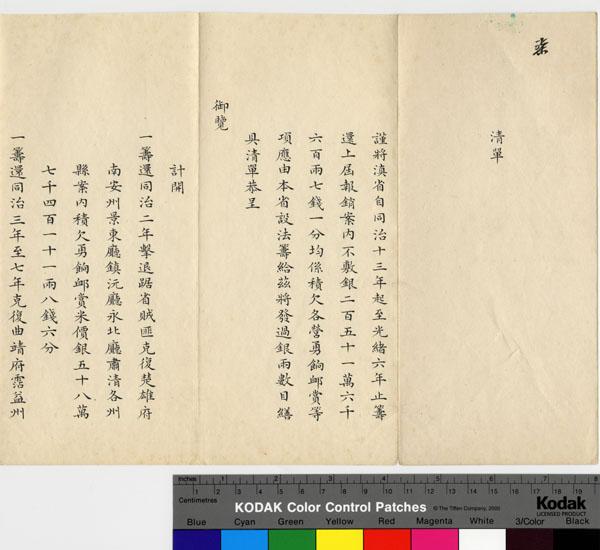 柒
清單
謹將滇省自同治十三年起至光緒六年止籌
還上屆報銷案內不敷銀二百五十一萬六千
六百兩七錢一分均係積欠各營勇餉卹賞等
項應由本省設法籌給茲將發過銀兩數目繕
具清單恭呈
御覽
計開
一籌還同治二年擊退踞省賊匪克復楚雄府
南安州景東廳鎮沅廳永北廳肅清各州
縣案內積欠勇餉卹賞米價銀五十八萬
七千四百一十一兩八錢六分
一籌還同治三年至七年克復曲靖府霑益州
Inches 1 2 3 4 5 6 7 8
Centimetres 1 2 3 4 5 6 7 8 9 10 11 12 13 14 15 16 17 18 19
KODAK Color Control Patches © The Tiffen Company, 2000
Kodak
LICENSED PRODUCT
Blue Cyan Green Yellow Red Magenta White 3/Color Black